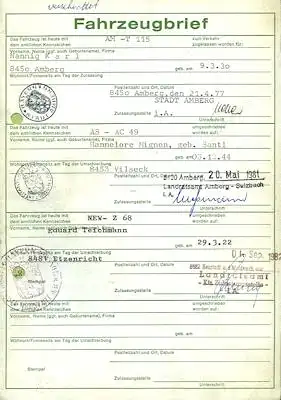 verschrottet
Fahrzeugbrief
Das Fahrzeug ist heute mit dem amtlichen Kennzeichen
AM -T 115
zum Verkehr zugelassen worden für:
Vorname, Name (ggf. auch Geburtsname), Firma
Nannig Karl
8450 Amberg
geb. am
9.3.30
Wohnsitz/Firmensitz am Tag der Zulassung
Postleitzahl und Ort, Datum
8450 Amberg, den 21.4.77
STADT AMBERG
Zulassungsstelle
i.A.
Unterschrift
Das Fahrzeug ist heute mit dem amtlichen Kennzeichen
AS - AC 49
umgeschrieben worden auf:
Vorname, Name (ggf. auch Geburtsname), Firma
Hannelore Mignon, geb. Santi
geb. am
03.12.44
Wohnsitz/Firmensitz am Tag der Umschreibung
8453 Vilseck
Postleitzahl und Ort, Datum
8450 Amberg, 20. Mai 1981
Landratsamt Amberg - Sulzbach
i.A.
Zulassungsstelle
Unterschrift
Das Fahrzeug ist heute mit dem amtlichen Kennzeichen
NEW- Z 68
umgeschrieben worden auf:
Vorname, Name (ggf. auch Geburtsname), Firma
geb. am
29.3.22
Wohnsitz/Firmensitz am Tag der Umschreibung
Postleitzahl und Ort, Datum
Sep. 1982
Stempel
Zulassungsstelle
Unterschrift
Das Fahrzeug ist heute mit dem amtlichen Kennzeichen
umgeschrieben worden auf:
Vorname, Name (ggf. auch Geburtsname), Firma
geb. am
Wohnsitz/Firmensitz am Tag der Umschreibung
Postleitzahl und Ort, Datum
Stempel
Zulassungsstelle
Unterschrift